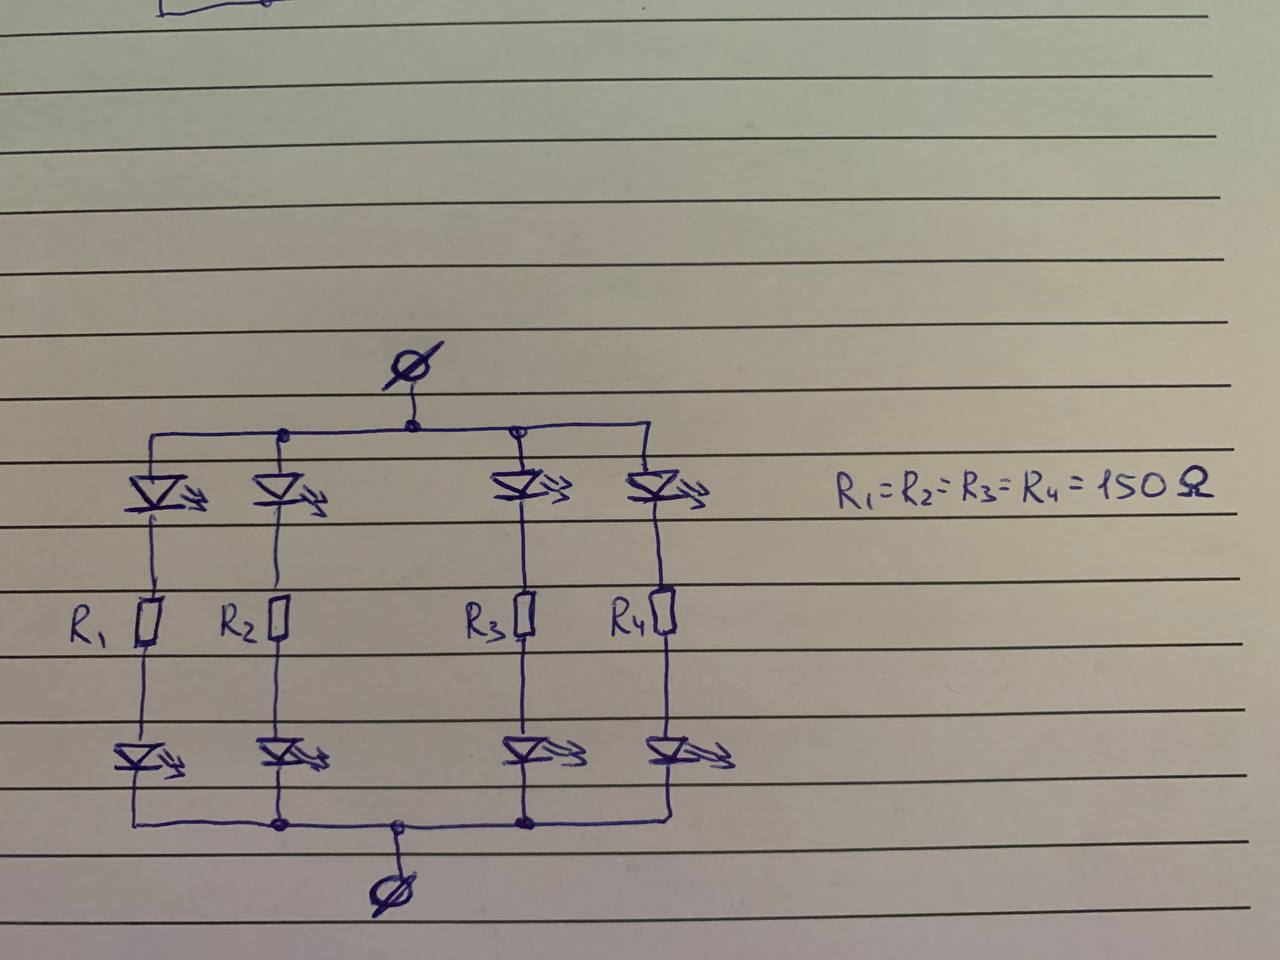 R₁=R₂=R₃=R₄=150Ω
R₁ R₂ R₃ R₄